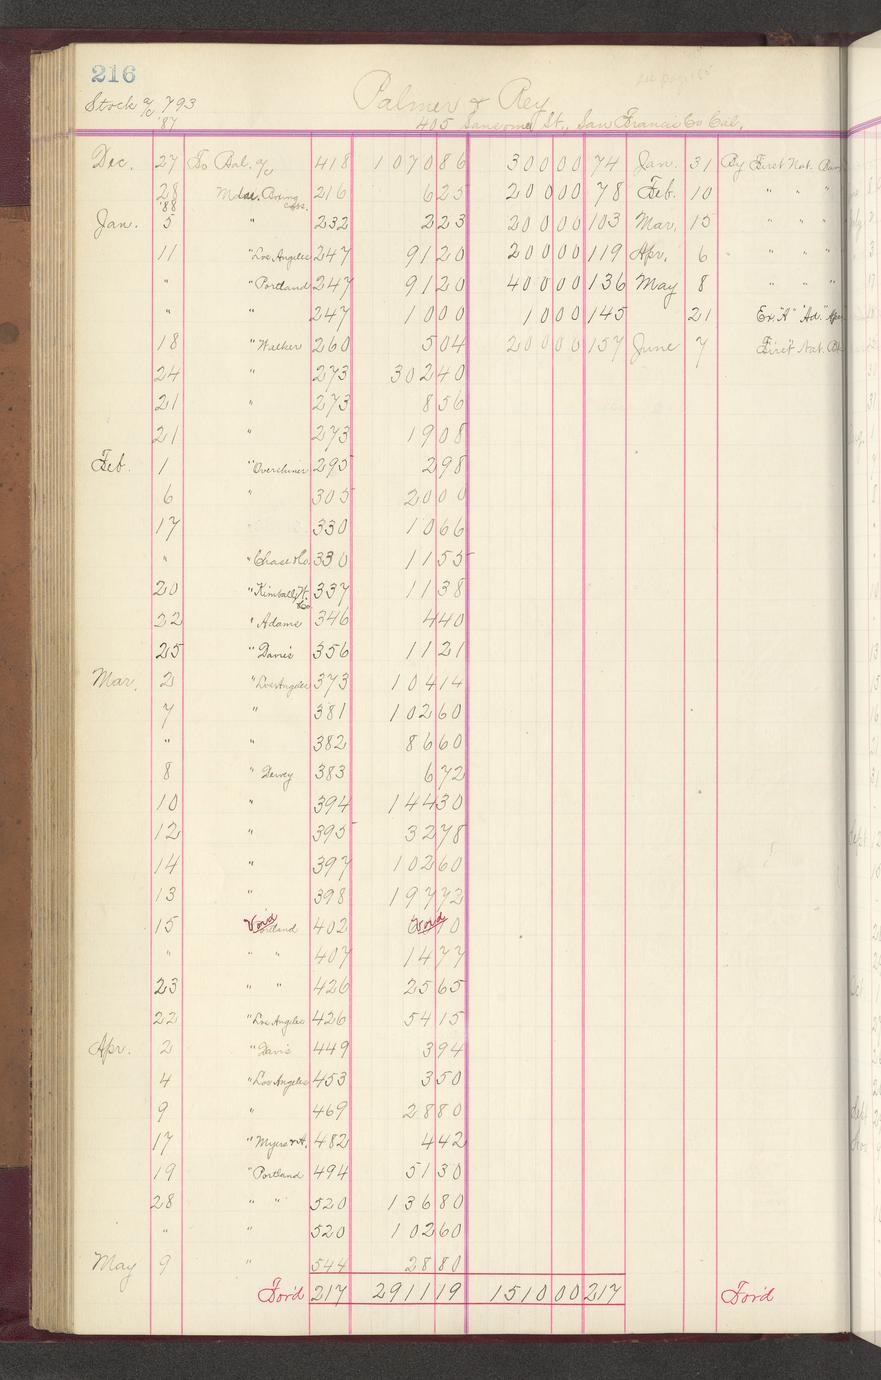 216
Stock a/c 793
Palmer & Rey
'87
405 Sansome St., San Francisco Cal.
Dec. 27 To Bal. a/c 418 1070 86 300 00 74 Jan. 31 By First Nat. Ban
28 Mdse. Boxing &c. 216 6 25 200 00 78 Feb. 10 " " "
'88
Jan. 5 " 232 2 23 200 00 103 Mar. 15 " " "
11 " Los Angeles 247 91 20 200 00 119 Apr. 6 " " "
" " Portland 247 91 20 400 00 136 May 8 " " "
" " 247 10 00 10 00 145 21 Ex. "A" "Ad."
18 " Walker 260 5 04 200 00 157 June 7 First Nat. Bk
24 " 273 302 40
21 " 273 8 56
21 " 273 19 08
Feb. 1 " Overshiner 295 2 98
6 " 305 20 00
17 330 10 66
" " Chase & Co. 330 11 55
20 " Kimball, W. & Co. 337 11 38
22 " Adams 346 4 40
25 " Davis 356 11 21
Mar. 2 " Los Angeles 373 104 14
7 " 381 102 60
" " 382 86 60
8 " Dewey 383 6 72
10 " 394 144 30
12 " 395 32 78
14 " 397 102 60
13 " 398 197 72
15 Void Portland 402 Void
" " " 407 14 77
23 " " 426 25 65
22 " Los Angeles 426 54 15
Apr. 2 " Davis 449 3 94
4 " Los Angeles 453 3 50
9 " 469 28 80
17 " Myers & A. 482 4 42
19 " Portland 494 51 30
28 " " 520 136 80
" " 520 102 60
May 9 " 544 28 80
For'd 217 2911 19 1510 00 217 For'd